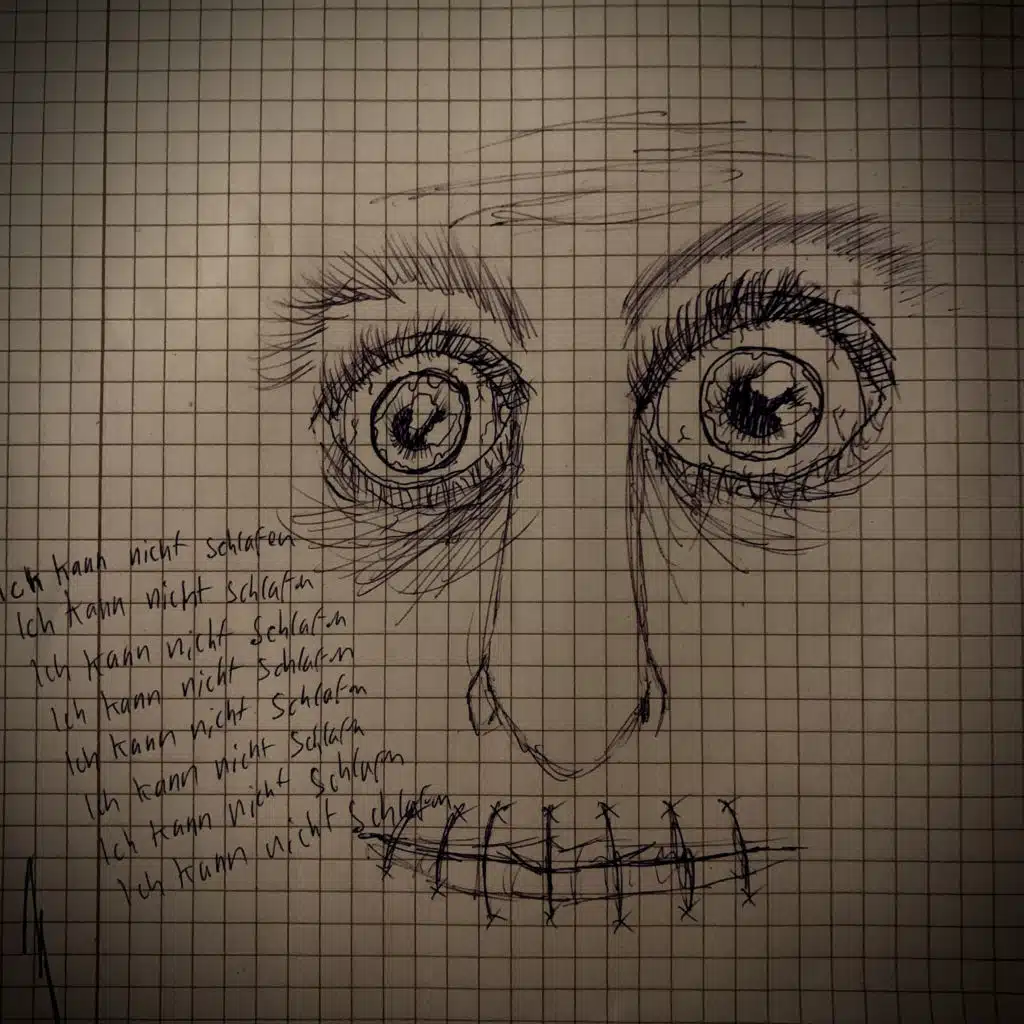 Ich kann nicht schlafen
Ich kann nicht schlafen
Ich kann nicht Schlafen
Ich kann nicht Schlafen
Ich kann nicht Schlafen
Ich kann nicht Schlafen
Ich kann nicht Schlafen
Ich kann nicht Schlafen